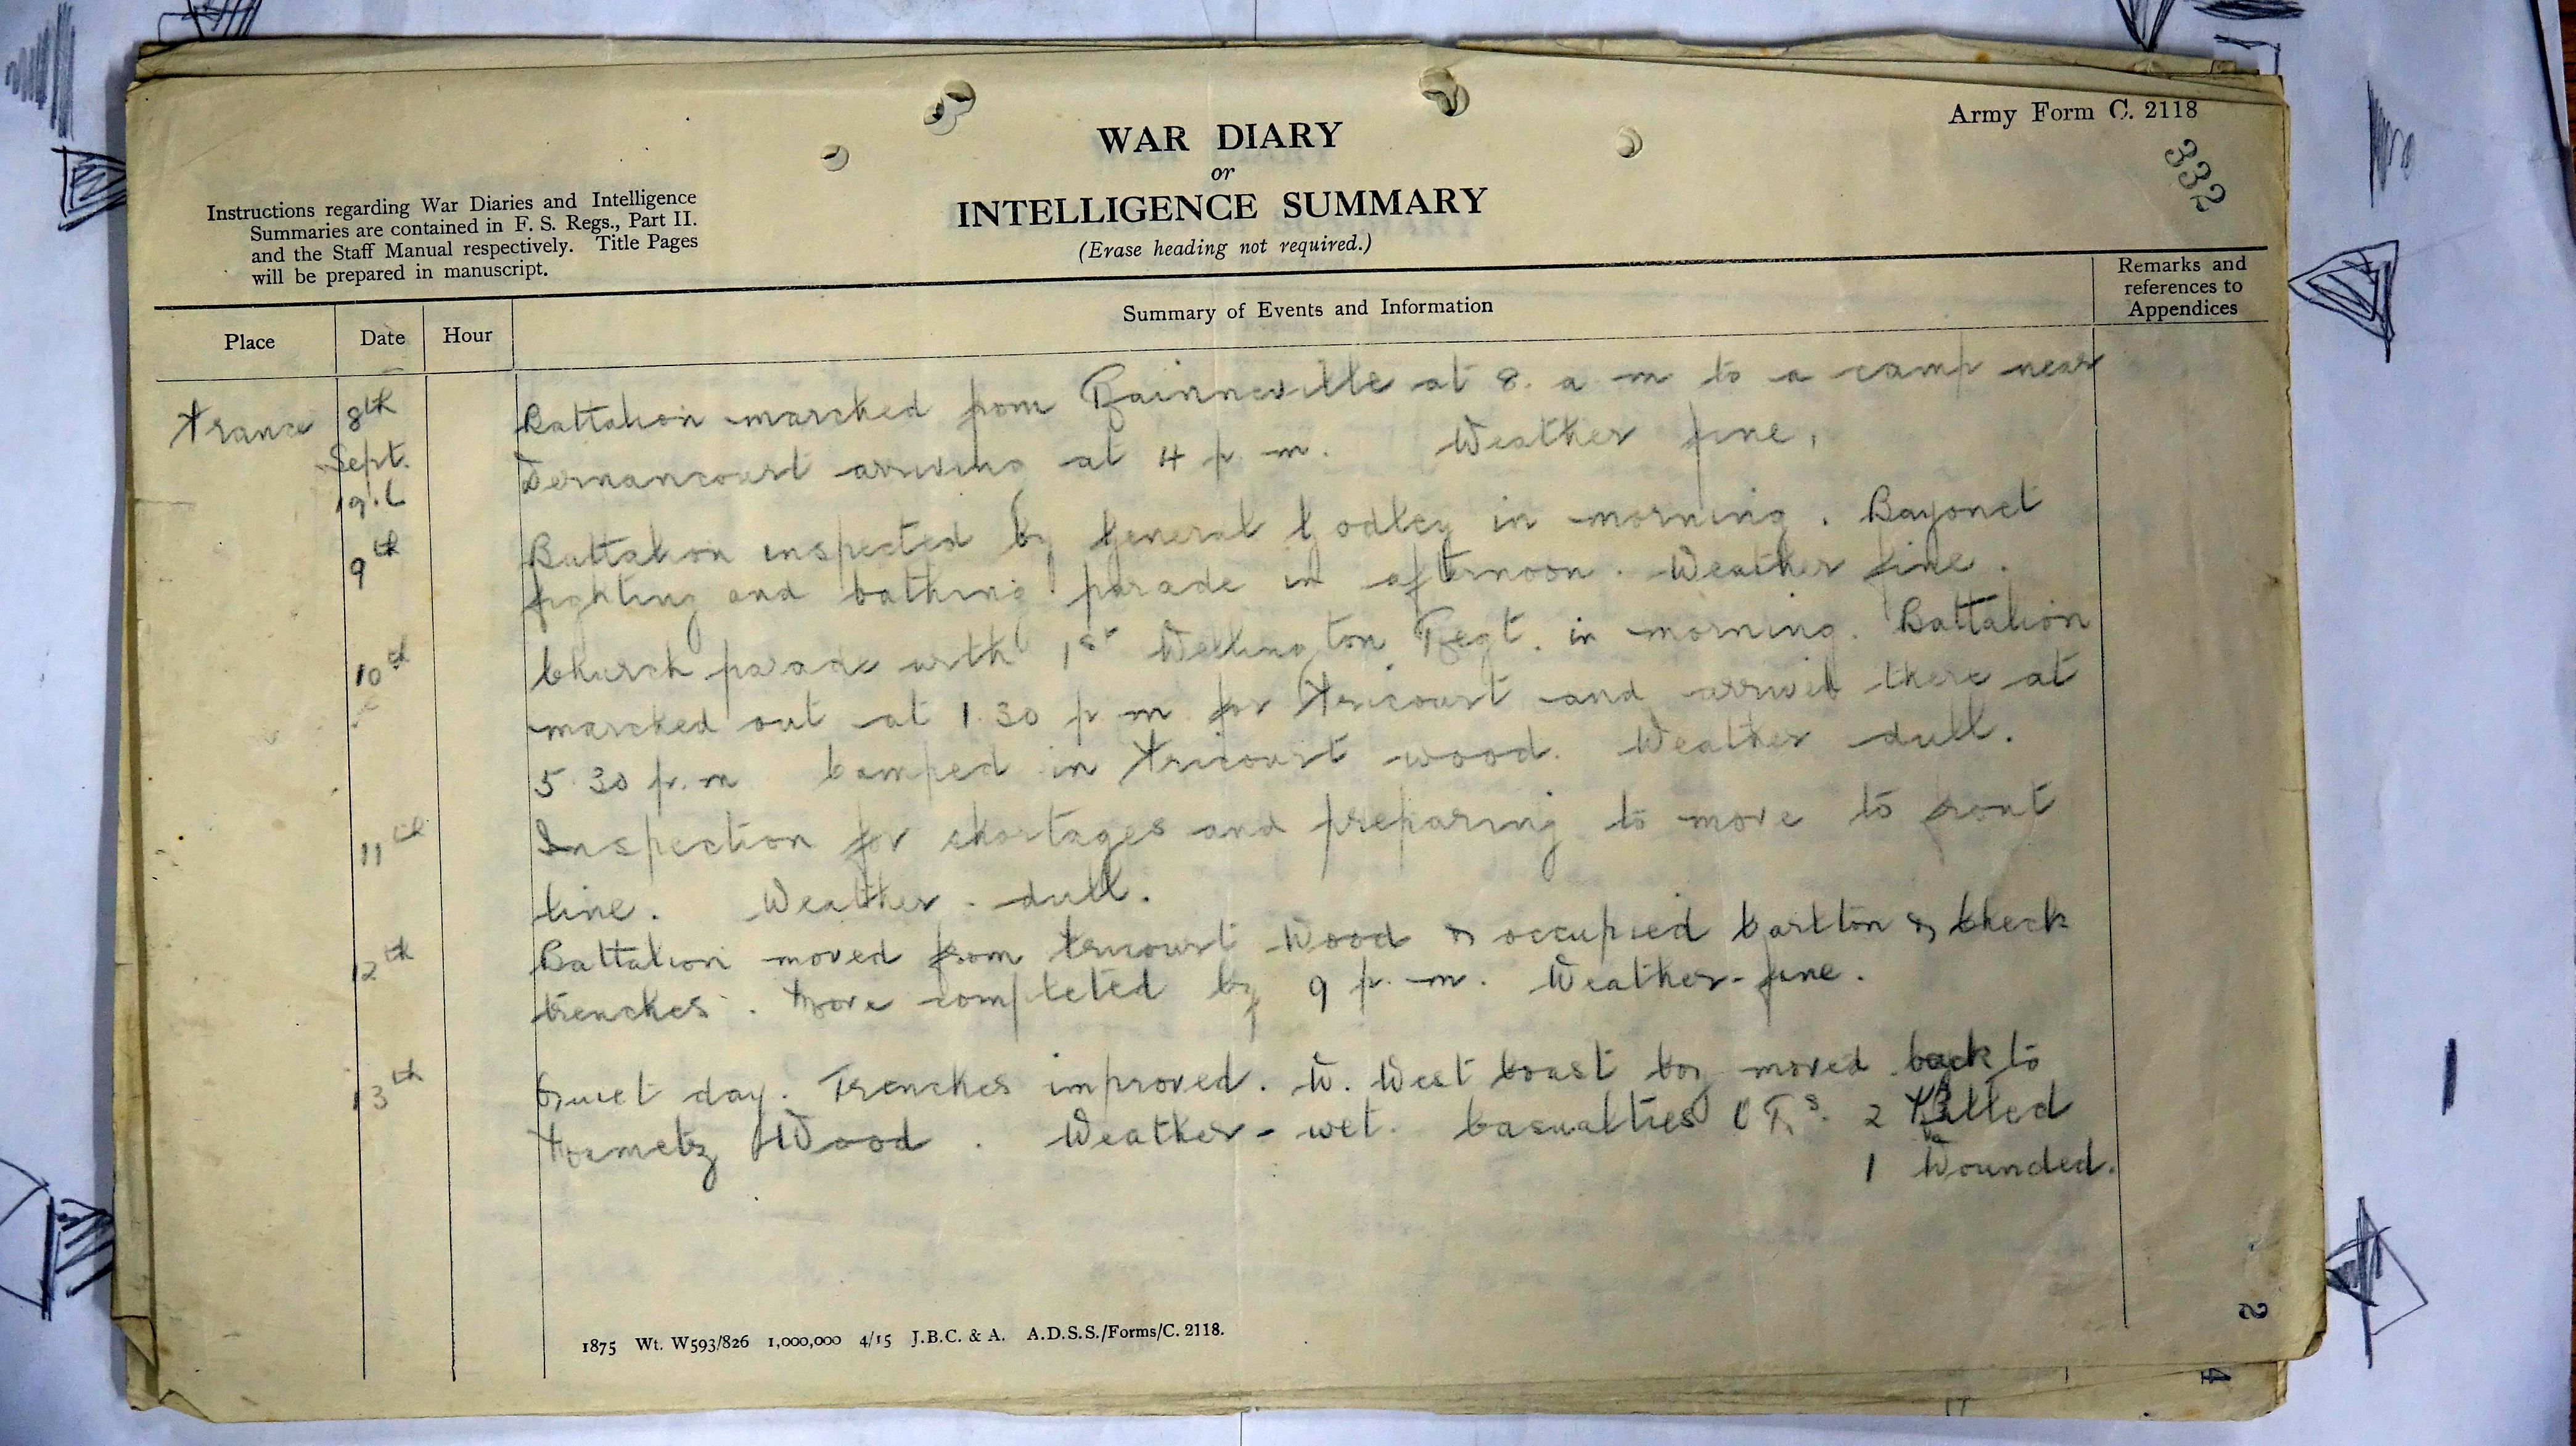 Army Form C. 2118
332
WAR DIARY
or
INTELLIGENCE SUMMARY
(Erase heading not required.)
Instructions regarding War Diaries and Intelligence
Summaries are contained in F. S. Regs., Part II.
and the Staff Manual respectively. Title Pages
will be prepared in manuscript.
Place Date Hour Summary of Events and Information Remarks and
references to
Appendices
France 8th Battalion marched from Bainneville at 8. a m to a camp near
Sept. Dernancourt arriving at 4 p. m. Weather fine.
9th Battalion inspected by General Godley in morning. Bayonet
fighting and bathing parade in afternoon. Weather fine.
10th Church parade with 1st Wellington Regt. in morning. Battalion
marched out at 1.30 p m for Fricourt and arrived there at
5.30 p.m Camped in Fricourt wood. Weather dull.
11th Inspection for shortages and preparing to move to front
line. Weather - dull.
12th Battalion moved from Fricourt Wood & occupied Carlton & Check
trenches. Move completed by 9 p. m. Weather - fine.
13th Quiet day. Trenches improved. W. West Coast Coy moved back to
Mametz Wood. Weather - wet. Casualties O Rs. 2 Killed
1 Wounded.
1875 Wt. W593/826 1,000,000 4/15 J.B.C. & A. A.D.S.S./Forms/C. 2118.
2
4